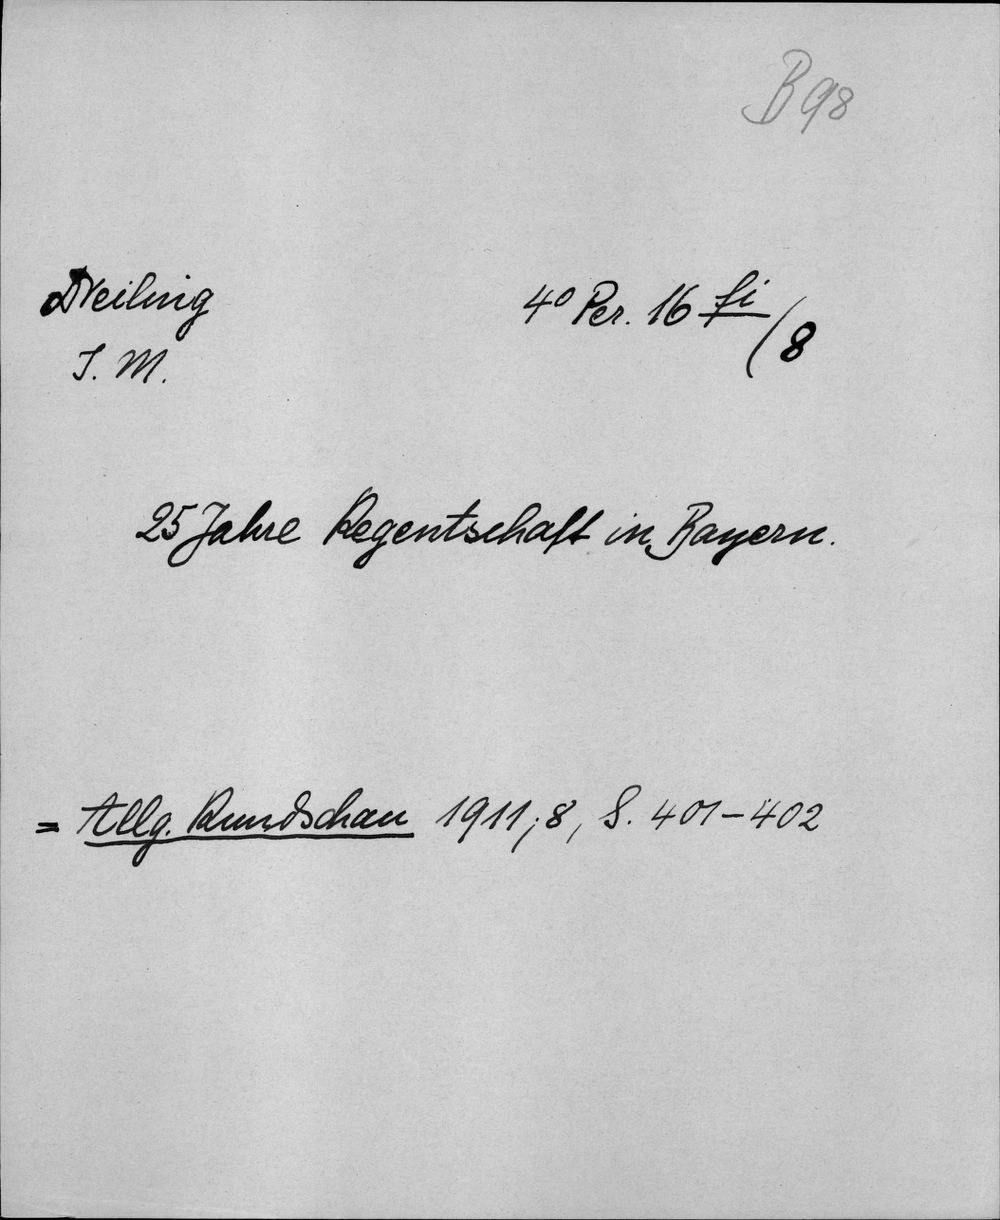 B 98
Dreiling 4° Per. 16 fi/8
J. M.
25 Jahre Regentschaft in Bayern.
= Allg. Rundschau 1911; 8, S. 401-402